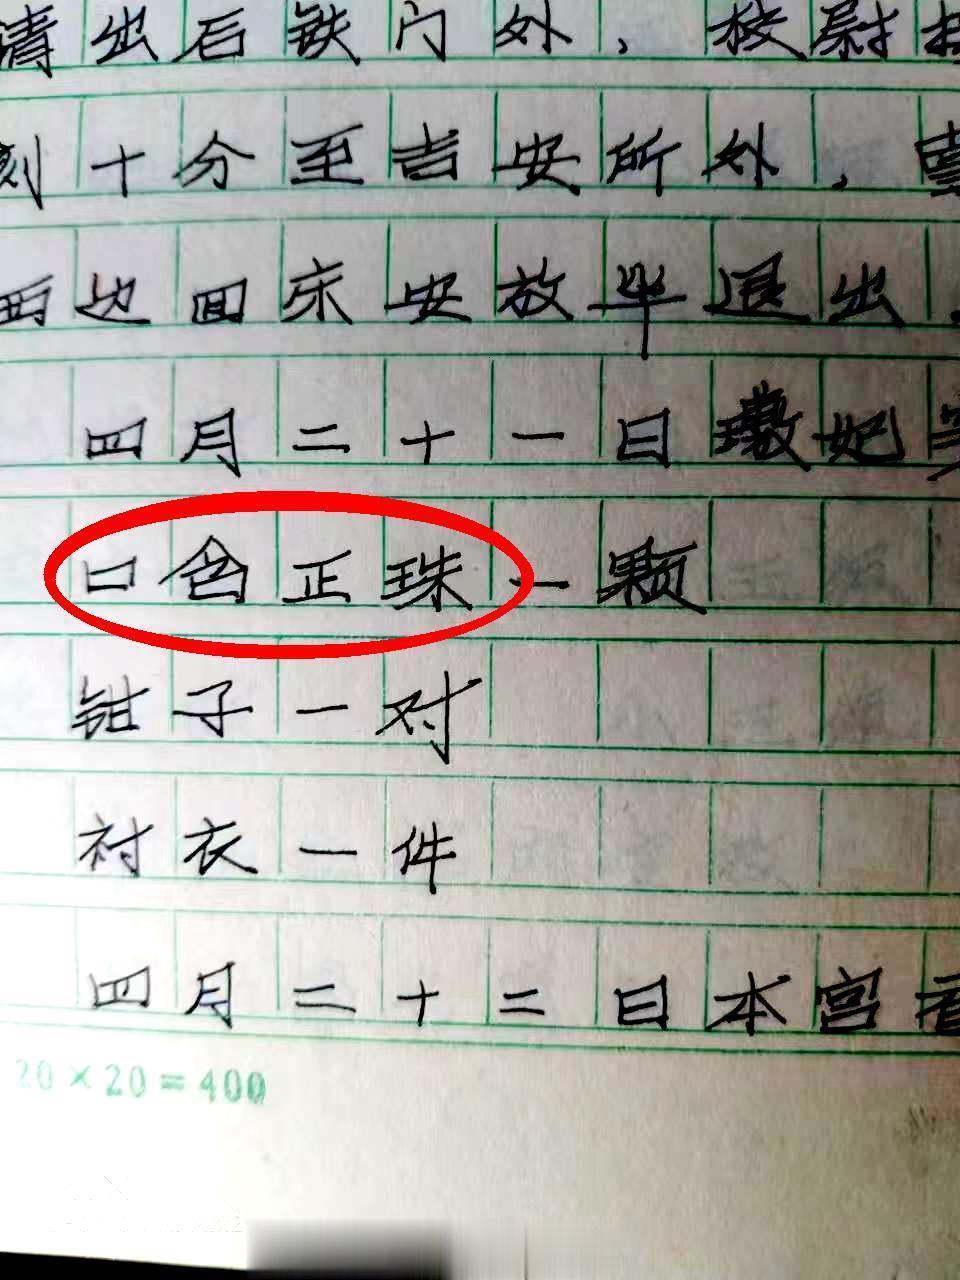 请出后铁门外，校尉
刻十分至吉安所外，
两边回床安放毕退出，
四月二十一日瑾妃
口含正珠一颗
钳子一对
衬衣一件
四月二十二日本宫
20×20=400